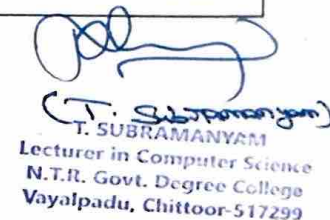 (T. Subramanyam)
T. SUBRAMANYAM
Lecturer in Computer Science
N.T.R. Govt. Degree College
Vayalpadu, Chittoor-517299